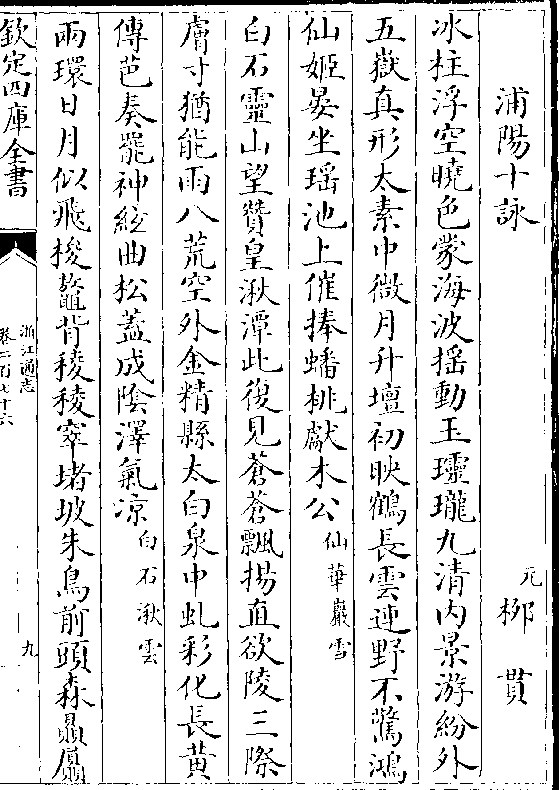 浦陽十詠
元 桞 貫
冰柱浮空曉色蒙海波揺動玉㻏瓏九清内景游紛外
五嶽真形太素中微月升壇初映鶴長雲連野不驚鴻
仙姬晏坐瑶池上催捧蟠桃獻木公仙華巖雪
白石靈山望贊皇湫潭此復見蒼蒼飄揚直欲陵三際
膚寸猶能雨八荒空外金精縣太白泉中虬彩化長黄
傳芭奏罷神絃曲松葢成陰澤氣凉白石湫雲
兩環日月似飛梭鼇背稜稜窣堵坡朱鳥前頭森贔屭
欽定四庫全書
浙江通志
卷二百七十六
九